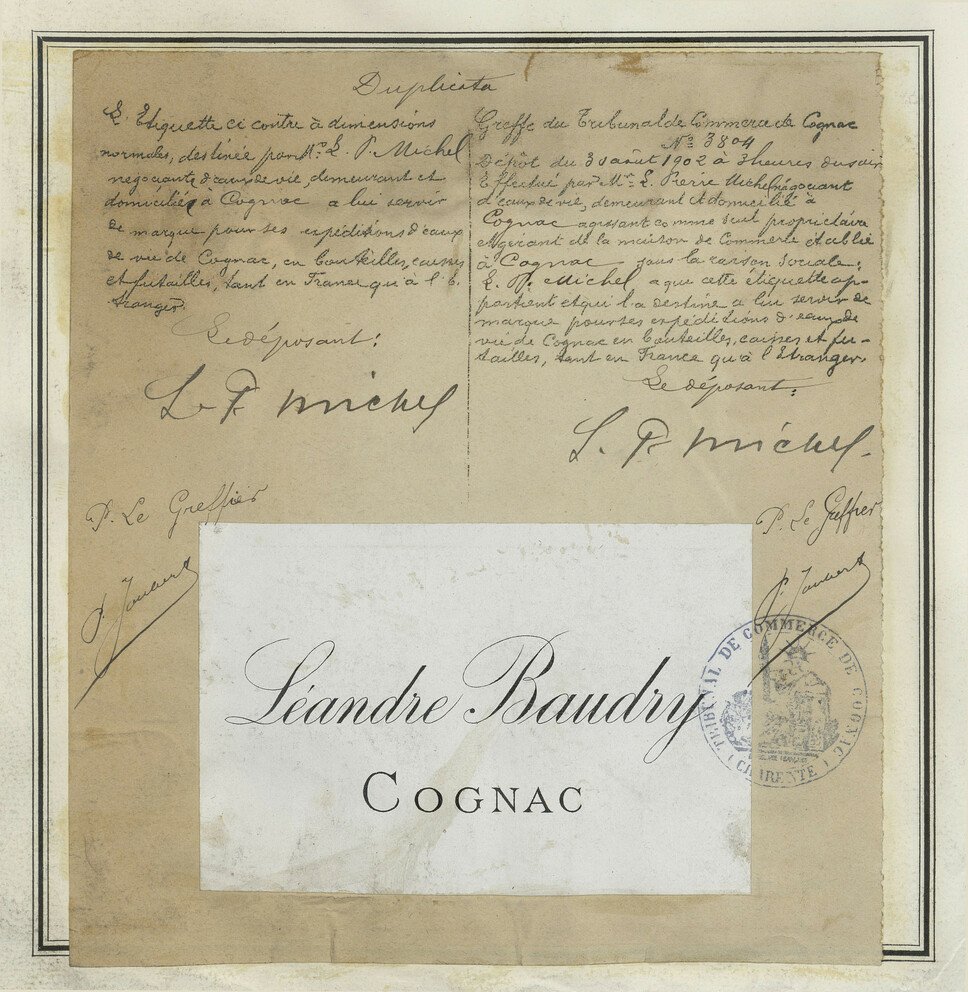 Duplicata
L'Etiquette ci contre à dimensions
normales, destinée par Mr. L. P. Michel
négociant d'eaux de vie, demeurant et
domicilié à Cognac a lui servir
de marque pour ses expéditions d'eaux
de vie de Cognac, en bouteilles, caisses
et futailles, tant en France qu'à l'E-
tranger.
Le déposant:
L. P. Michel
P. Le Greffier
P. Joubert
Greffe du Tribunal de Commerce de Cognac
No 3804
Dépôt du 31 août 1902 à 3 heures du soir
Effectué par Mr. L. Pierre Michel négociant
d'eaux de vie, demeurant et domicilié à
Cognac agissant comme seul propriétaire
et gérant de la maison de Commerce établie
à Cognac sous la raison sociale:
L. P. Michel a qui cette étiquette ap-
partient et qui l'a destine a lui servir de
marque pour ses expéditions d'eaux de
vie de Cognac en bouteilles, caisses et fu-
tailles, tant en France qu'à l'Etranger.
Le déposant:
L. P. Michel.
P. Le Greffier
P. Joubert
Léandre Baudry
COGNAC
TRIBUNAL DE COMMERCE DE COGNAC
(CHARENTE)